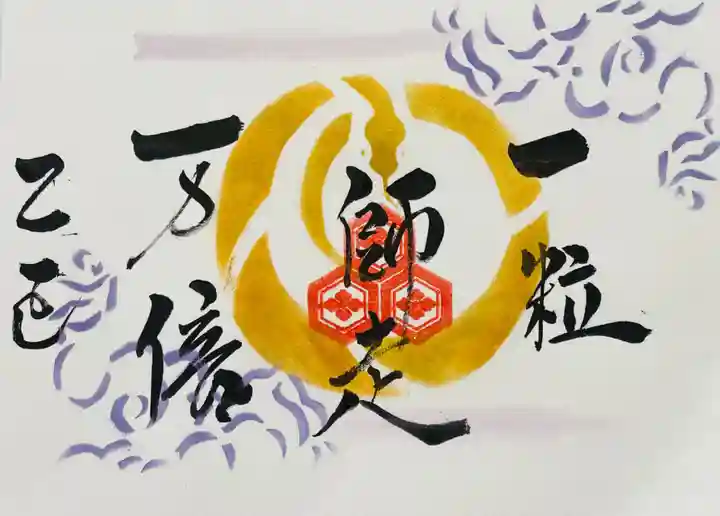 一粒
師走
一万倍
乙巳